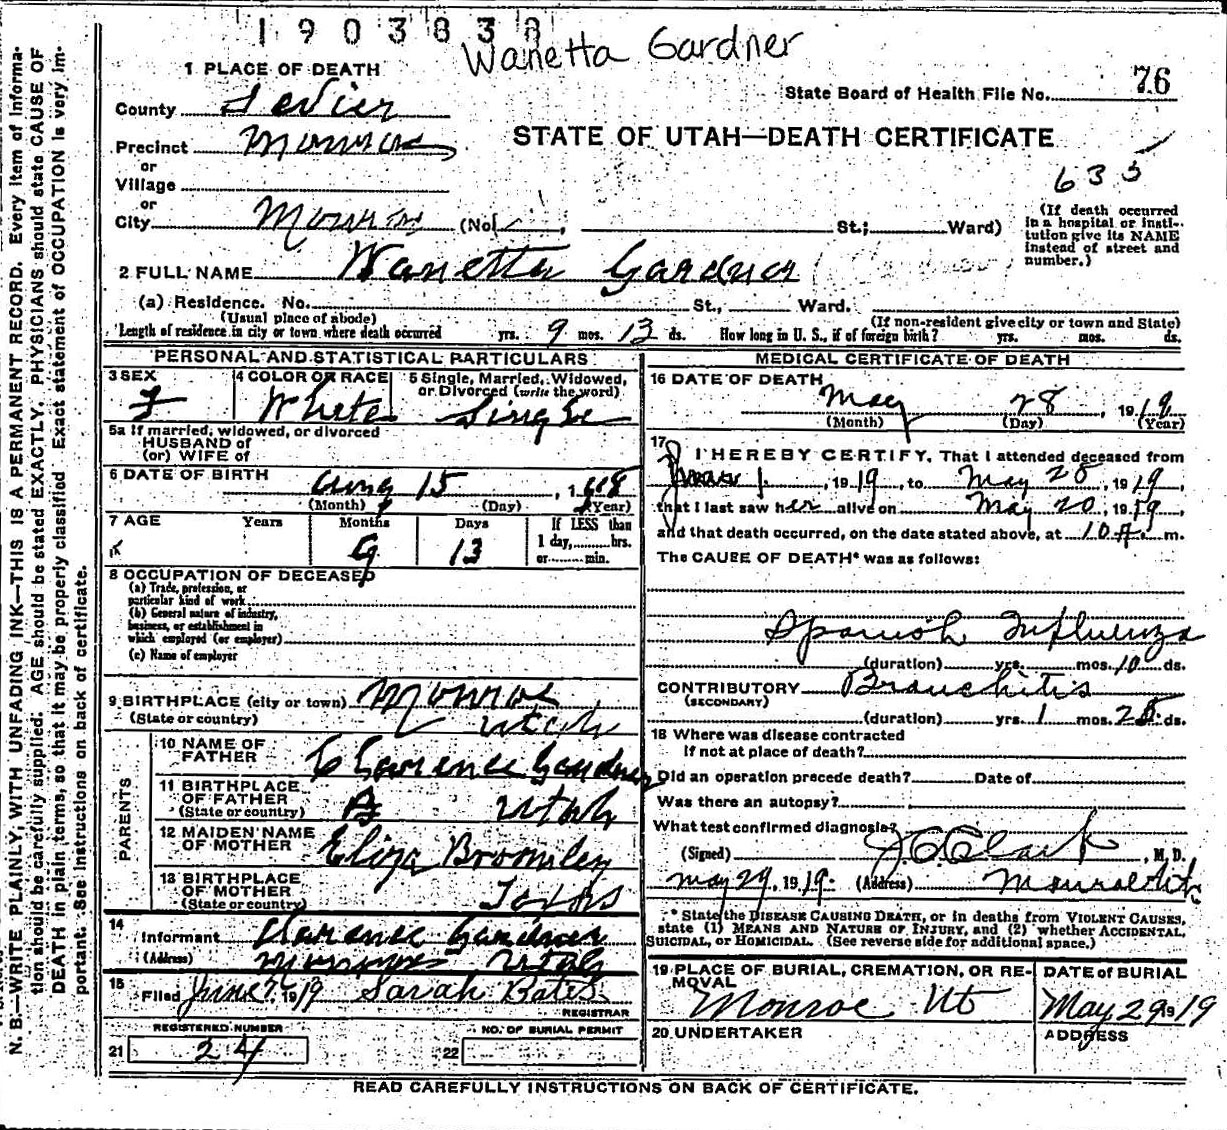 1903838
Wanetta Gardner
1 PLACE OF DEATH
State Board of Health File No. 76
County Sevier
STATE OF UTAH—DEATH CERTIFICATE
Precinct Monroe
or
Village
635
or
City Monroe (No. , St.; Ward)
(If death occurred in a hospital or institution give its NAME instead of street and number.)
2 FULL NAME Wanetta Gardner
(a) Residence. No. St., Ward.
(Usual place of abode) (If non-resident give city or town and State)
Length of residence in city or town where death occurred yrs. 9 mos. 13 ds. How long in U. S., if of foreign birth? yrs. mos. ds.
PERSONAL AND STATISTICAL PARTICULARS
3 SEX F
4 COLOR OR RACE White
5 Single, Married, Widowed, or Divorced (write the word) Single
5a If married, widowed, or divorced
HUSBAND of
(or) WIFE of
6 DATE OF BIRTH Aug 15, 1918
(Month) (Day) (Year)
7 AGE Years Months Days If LESS than
9 13 1 day, hrs.
or min.
8 OCCUPATION OF DECEASED
(a) Trade, profession, or
particular kind of work
(b) General nature of industry,
business, or establishment in
which employed (or employer)
(c) Name of employer
9 BIRTHPLACE (city or town) Monroe
(State or country) Utah
PARENTS
10 NAME OF FATHER Clarence Gardner
11 BIRTHPLACE OF FATHER Utah
(State or country)
12 MAIDEN NAME OF MOTHER Eliza Bromley
13 BIRTHPLACE OF MOTHER
(State or country)
14
Informant Clarence Gardner
(Address) Monroe Utah
15
Filed June 7, 1919 Sarah Bates
REGISTRAR
REGISTERED NUMBER
21 24
NO. OF BURIAL PERMIT
22
MEDICAL CERTIFICATE OF DEATH
16 DATE OF DEATH
May 28, 1919
(Month) (Day) (Year)
17
I HEREBY CERTIFY, That I attended deceased from
1, 1919, to May 28, 1919,
that I last saw her alive on May 20, 1919,
and that death occurred, on the date stated above, at 10 A. m.
The CAUSE OF DEATH* was as follows:
Spanish Influenza
(duration) yrs. mos. 10 ds.
CONTRIBUTORY Bronchitis
(SECONDARY)
(duration) yrs. 1 mos. 28 ds.
18 Where was disease contracted
If not at place of death?
Did an operation precede death? Date of
Was there an autopsy?
What test confirmed diagnosis?
(Signed) J.C. Clark, M. D.
May 29, 1919. (Address) Monroe Utah
* State the DISEASE CAUSING DEATH, or in deaths from VIOLENT CAUSES,
state (1) MEANS AND NATURE OF INJURY, and (2) whether ACCIDENTAL,
SUICIDAL, or HOMICIDAL. (See reverse side for additional space.)
19 PLACE OF BURIAL, CREMATION, OR REMOVAL
Monroe Ut
DATE of BURIAL
May 29 1919
20 UNDERTAKER
ADDRESS
READ CAREFULLY INSTRUCTIONS ON BACK OF CERTIFICATE.
N. B.—WRITE PLAINLY, WITH UNFADING INK—THIS IS A PERMANENT RECORD. Every item of informa-
tion should be carefully supplied. AGE should be stated EXACTLY. PHYSICIANS should state CAUSE OF
DEATH in plain terms, so that it may be properly classified. Exact statement of OCCUPATION is very im-
portant. See instructions on back of certificate.